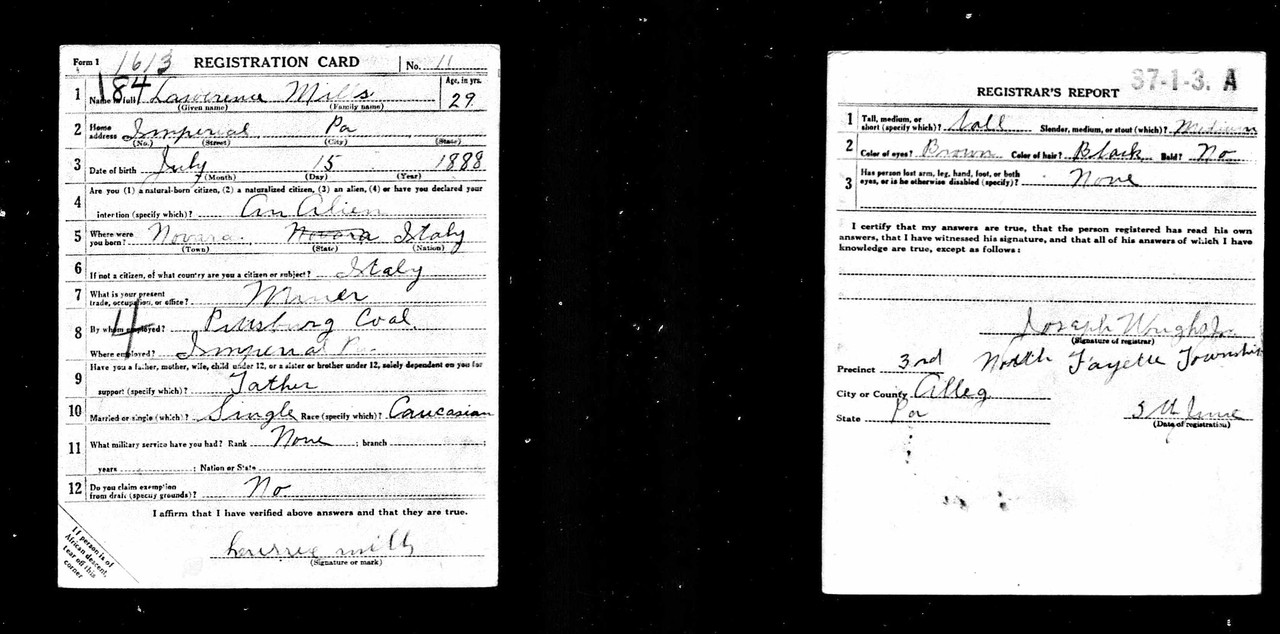 Form 1 1613 REGISTRATION CARD No. 11
184
1 Name in full Lawerence Mills Age, in yrs. 29
(Given name) (Family name)
2 Home address Imperial Pa
(No.) (Street) (City) (State)
3 Date of birth July 15 1888
(Month) (Day) (Year)
Are you (1) a natural-born citizen, (2) a naturalized citizen, (3) an alien, (4) or have you declared your
4 intention (specify which)? An Alien
5 Where were you born? Novara Novara Italy
(Town) (State) (Nation)
6 If not a citizen, of what country are you a citizen or subject? Italy
7 What is your present trade, occupation, or office? Miner
8 By whom employed? Pittsburg Coal
4
Where employed? Imperial Pa
Have you a father, mother, wife, child under 12, or a sister or brother under 12, solely dependent on you for
9 support (specify which)? Father
10 Married or single (which)? Single Race (specify which)? Caucasian
11 What military service have you had? Rank None ; branch ;
years ; Nation or State
12 Do you claim exemption from draft (specify grounds)? No
I affirm that I have verified above answers and that they are true.
mills
(Signature or mark)
If person is of
African descent,
tear off this
corner
37-1-3. A
REGISTRAR'S REPORT
1 Tall, medium, or short (specify which)? tall Slender, medium, or stout (which)? Medium
2 Color of eyes? Brown Color of hair? Black Bald? No
3 Has person lost arm, leg, hand, foot, or both eyes, or is he otherwise disabled (specify)? None
I certify that my answers are true, that the person registered has read his own
answers, that I have witnessed his signature, and that all of his answers of which I have
knowledge are true, except as follows:
Joseph Wright Jr.
(Signature of registrar)
Precinct 3rd North Fayette Township
City or County Alleg
State Pa 5th June
(Date of registration)